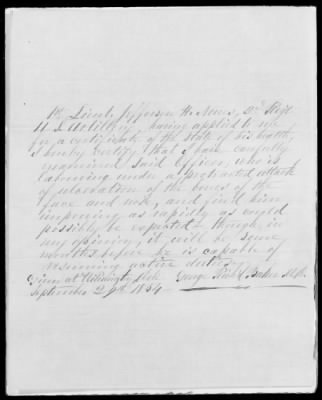 1st Lieut. Jefferson H. Nones, 2nd Regt
U.S. Artillery, having applied to me
for a certificate of the state of his health,
I hereby certify, that I have carefully
examined said Officer, who is
labouring under a protracted attack
of ulceration of the bones of the
face and nose, and find him
improving as rapidly as could
possibly be expected – though, in
my opinion, it will be some
months before he is capable of
resuming active duties.
Given at Wilmington
September 1854 George Baker M.D.